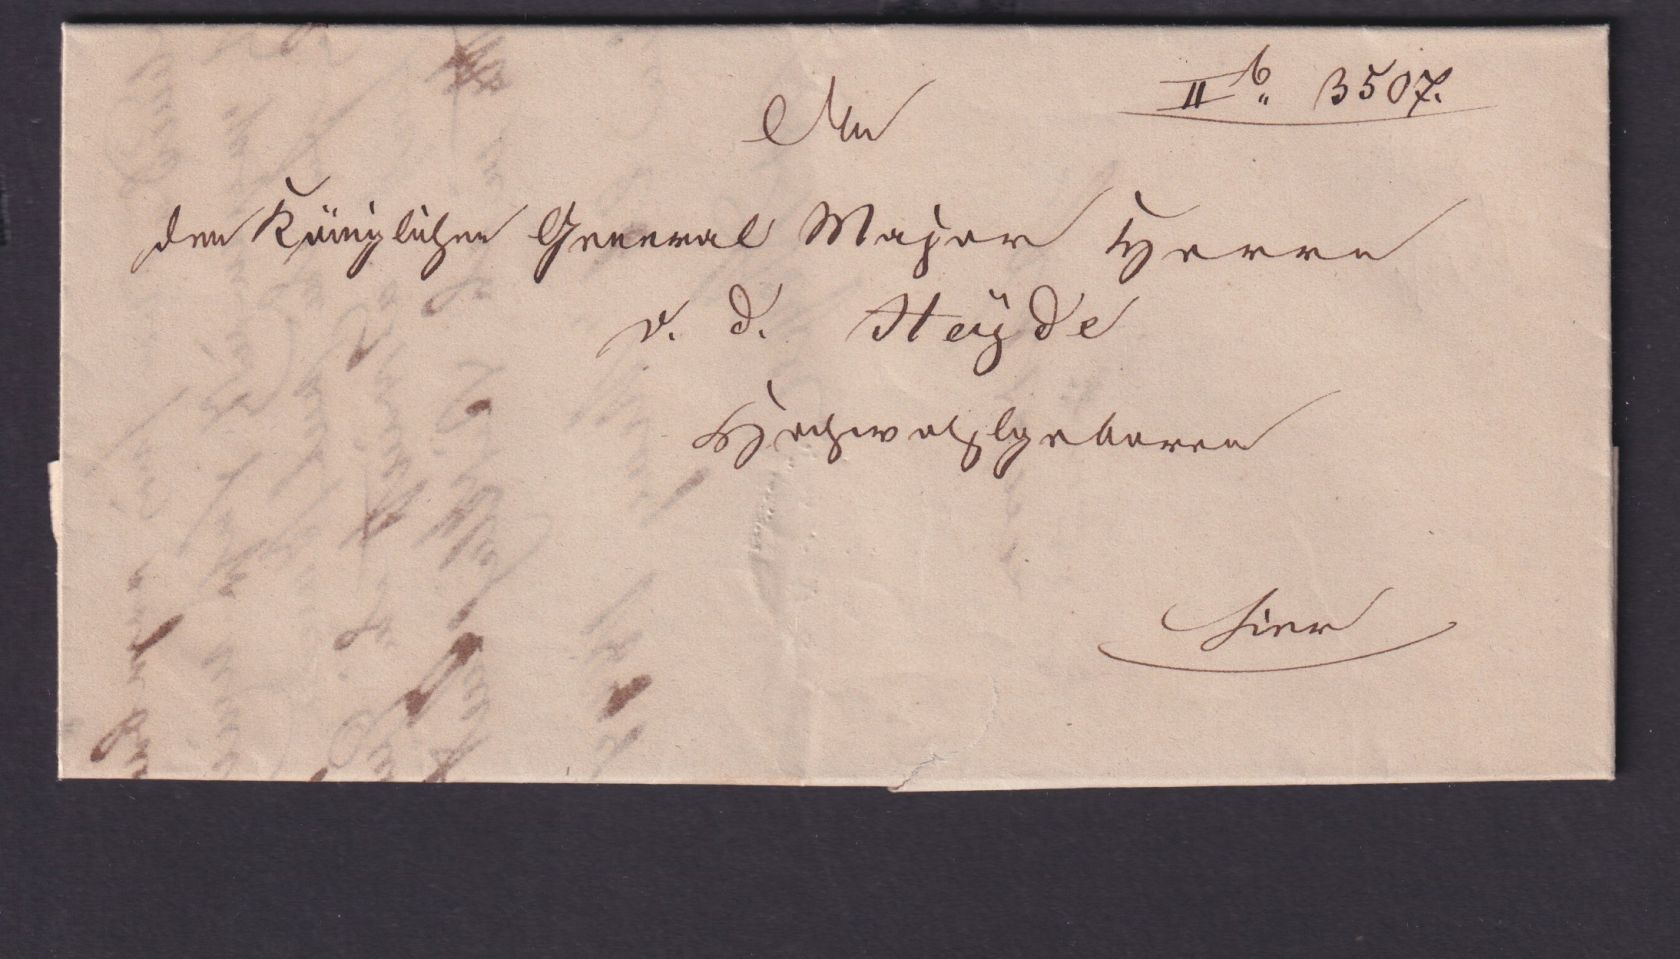 An
II b. 3507.
den Königlichen General Major Herrn
v. d. Heÿde
Hochwohlgeboren
hier